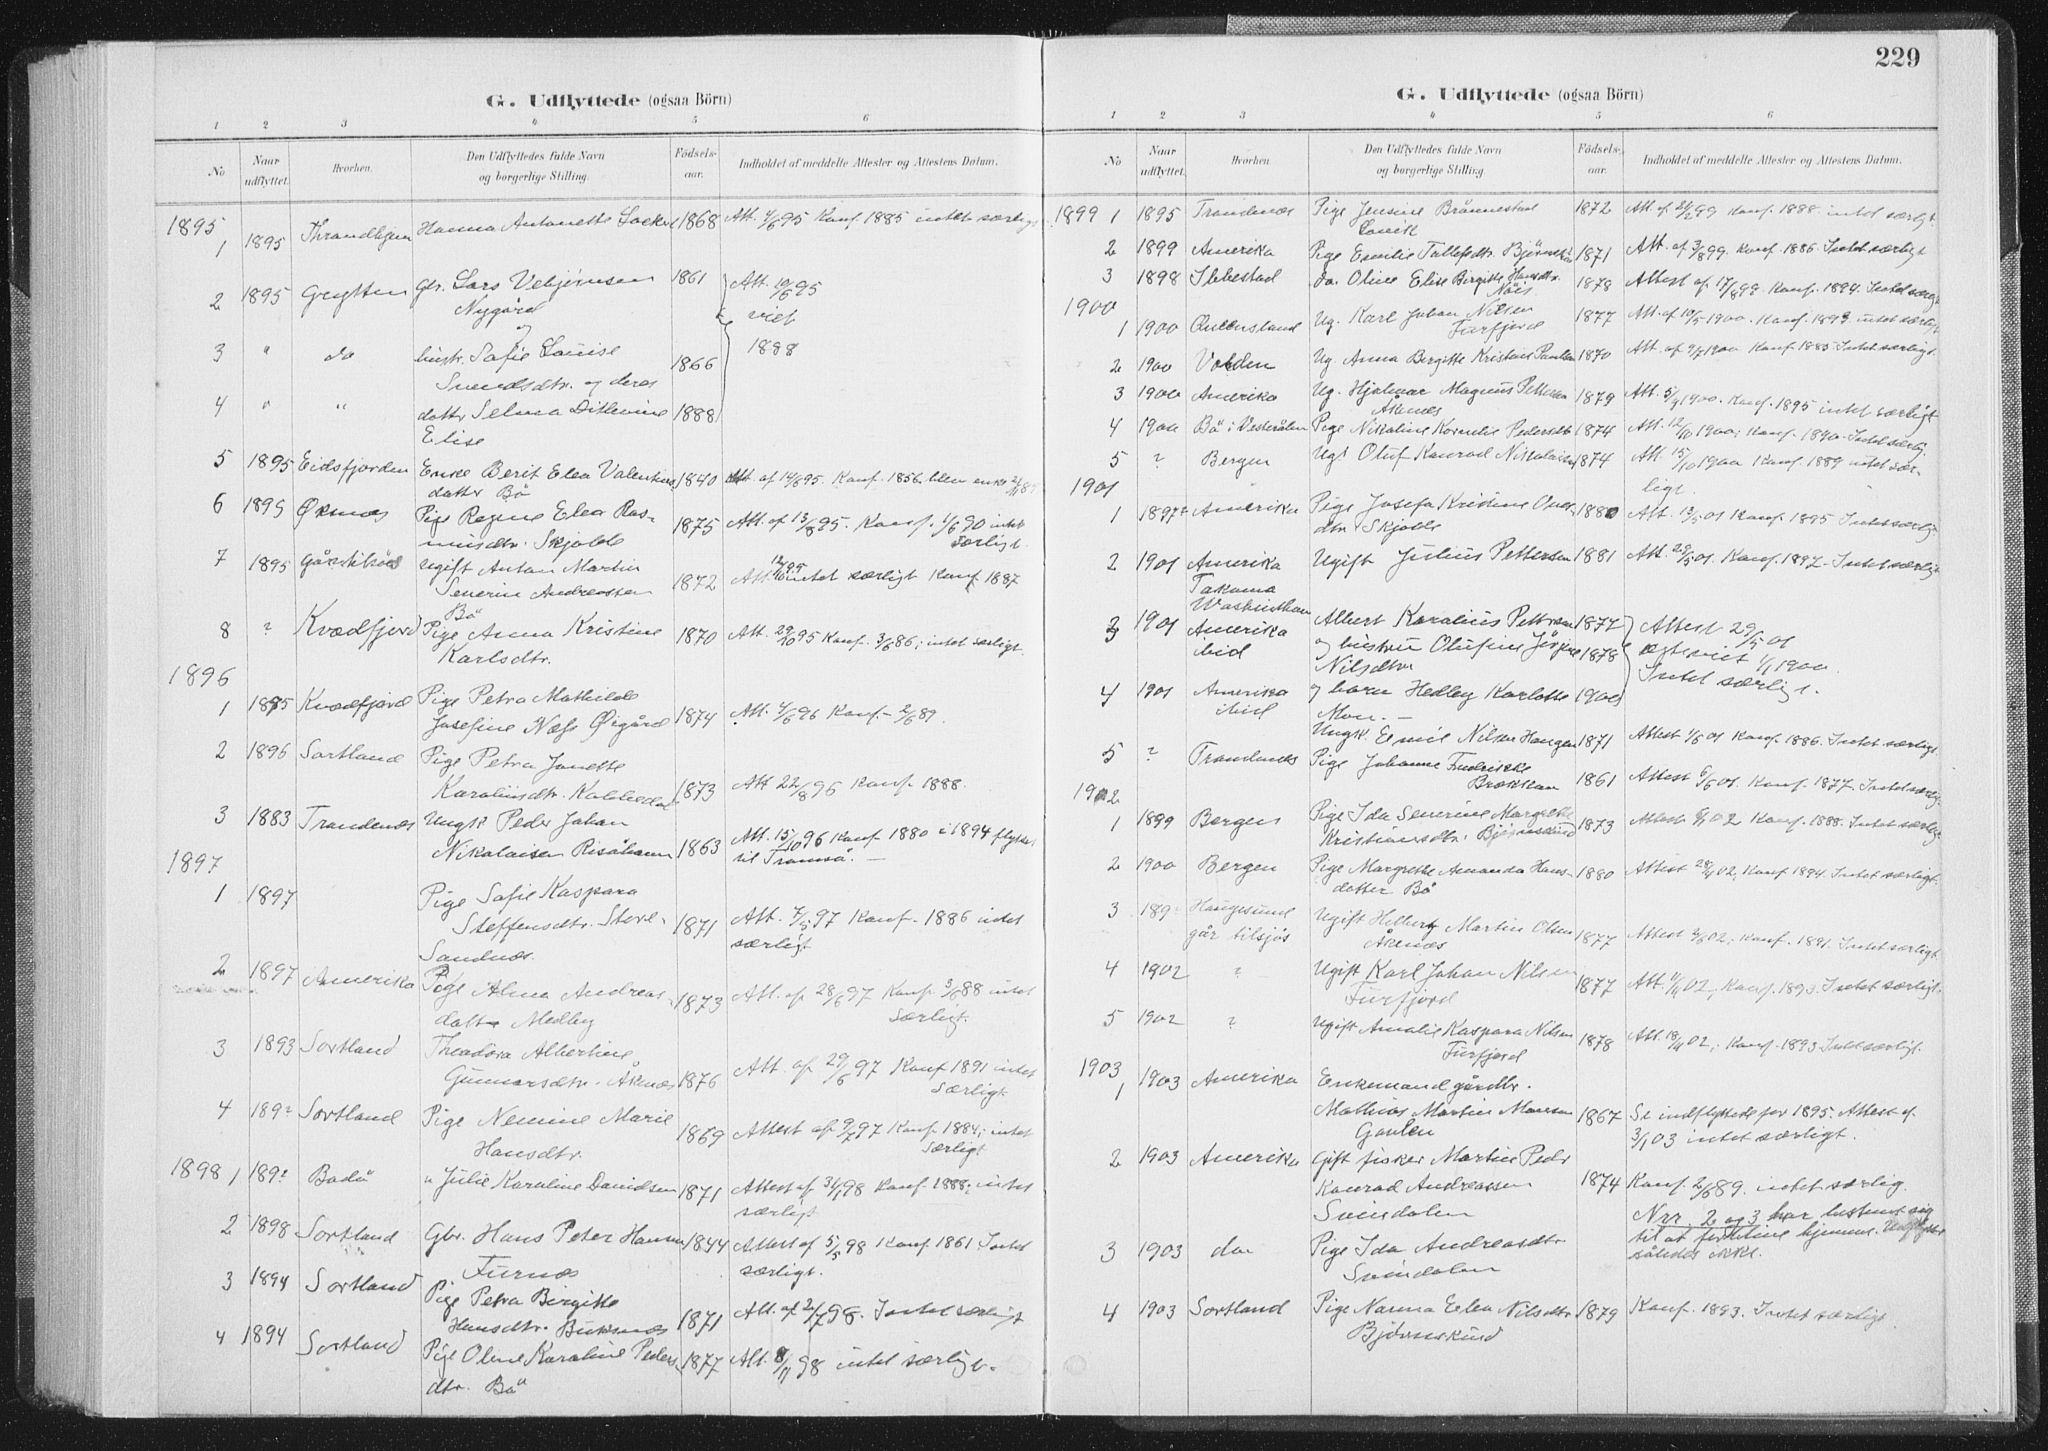 G. Udflyttede (ogsaa Börn)
1 2 3 4 5 6
No
Naar udflyttet.
Hvorhen.
Den Udflyttedes fulde Navn og borgerlige Stilling.
Fødsels-aar.
Indholdet af meddelte Attester og Attestens Datum.
1895
1 1895 Hanna Antonette 1868 Att. 4/6 95 Konf. 1885 intet særligt
2 1895 Gbr. Lars Vebjørnsen 1861 Att. 10/6 95
Nygård viet
og
3 " do hustr. Sofie Louise 1866 1888
Svendsdtr. og deres
4 " " dattr Selma Ditlevine 1888
Elise
5 1895 Eidsfjorden Enke Berit Elea Valentins 1840 Att. af 14/8 95. Konf. 1856. blev enke
datter Bö
6 1895 Øksnes Pige Regine Elea Ras- 1875 Att. af 13/8 95. Konf. 1/6 90 intet
musdtr. Skjolde særligt.
7 1895 Ugift Anton Martin 1872 Att. intet særligt Konf. 1887
Severin Andreassen
Bö
8 ? Kvædfjord Pige Anna Kristine 1870 Att. 29/10 95 Konf. 3/6 86; intet særligt.
Karlsdtr.
1896
1 1895 Kvædfjord Pige Petra Mathilde
Josefine Næss Øigård 1874 Att. 4/6 96 Konf. - 2/6 89.
2 1896 Sortland Pige Petra Janette
Karoliusdtr. 1873 Att 22/8 96 Konf. 1888.
3 1883 Trondenæs Ungk Peder Johan
Nikolaisen Risöhamn 1863 Att. 15/10 96 Konf 1880 i 1894 flyttet
til Tromsö. -
1897
1 1897 Pige Sofie Kaspara
Steffensdtr. Store- 1871 Att. 7/5 97 Konf. 1886 intet
Sandnes. særligt
2 1897 Amerika Pige Alma Andreas- 1873 Att. af 28/6 97 Konf 3/6 88 intet
dattr Medby særligt.
3 1893 Sortland Theodora Albertine
Gunnarsdtr. Åknes 1876 Att. af 29/6 97 Konf 1891 intet
særligt.
4 189? Sortland Pige Nemine Marie
Hansdtr. 1869 Attest af 9/7 97 Konf 1884; intet
særligt
1898 1 189? Bodö " Julie Karoline Davidsen 1871 Attest af 31/1 98 Konf. 1888; intet
særligt
2 1898 Sortland Gbr. Hans Peter Hansen 1844 Attest af 5/5 98 Konf 1861 Intet
Furnes særligt.
3 1894 Sortland Pige Petra Birgitte
Hansdtr. Buksnes 1871 Att. af 2/7 98. Intet særligt
4 1894 Sortland Pige Oline Karoline Peders- 1877 Att. 8/11 98 intet særligt.
dtr. Bö
229
G. Udflyttede (ogsaa Börn)
1 2 3 4 5 6
No
Naar udflyttet.
Hvorhen.
Den Udflyttedes fulde Navn og borgerlige Stilling.
Fødsels-aar.
Indholdet af meddelte Attester og Attestens Datum.
1899 1 1895 Trondenæs Pige Jensine Brönnestad 1872 Att. af 24/2 99 Konf. 1888. intet særligt.
2 1899 Amerika Pige Emilie Tollefsdtr. Björnskin 1871 Att. af 3/8 99. Konf. 1886. Intet særligt
3 1898 Ibbestad do. Oline Elise Birgitte Hansdtr. 1878 Attest af 17/8 99 Konf. 1894. Intet særligt
Nöis
1900
1 1900 Queensland Ug. Karl Johan Nilsen 1877 Att. af 10/5 1900. Konf. 1893 intet særligt
Furfjord
2 1900 Volden Ug Anna Bergitte Kristine Paulsen 1870 Att. af 9/7 1900 Konf. 1885. Intet særligt.
3 1900 Amerika Ug. Hjalmar Magnus Pettersen 1879 Att. 5/9 1900. Konf. 1895 intet særligt
Åknes
4 1900 Bö i Vesterålen Pige Nikoline Kornelie Pedersdtr 1874 Att. 12/10 1900; Konf. 1890. Intet særlig
5 ? Bergen Ugt Oluf Konrad Nikolaisen 1874 Att. 15/10 1900 Konf. 1889 intet sær-
ligt.
1901
1 1897 Amerika Pige Josefa Kristine 1880 Att. 13/5 01 Konf. 1895 Intet særlig
dtr. Skjolde
2 1901 Amerika Ugift Julius Pettersen 1881 Att. 29/5 01. Konf. 1897 - Intet særligt
Takoma
Washinthon
3 1901 Amerika Albert Karolius Pettersen 1877 Attest 29/5 01
ibid og hustru Olufine Jörgine 1878 ægteviet 1/1 1900.
Nilsdtr Intet særligt.
4 1901 Amerika og barn Hedley Karlotte 1900
ibid Mon. -
Ungk. Emil Nilsen Haugen 1871 Attest 1/6 01 Konf. 1886. Intet særligt
5 ? Trondenes Pige Johanne Fredrikke 1861 Attest 6/6 01. Konf. 1877. Intet særlig.
1902
1 1899 Bergen Pige Ida Severine Margrethe 1873 Attest 02 Konf. 1888. Intet særligt
Kristiansdtr. Björnskind
2 1900 Bergen Pige Margrethe Amanda Hans- 1880 Attest 28/1 02; Konf 1894 Intet særligt.
datter Bö
3 189? Haugesund Ugift Martin Olsen 1877 Attest 02; Konf. 1891. Intet særligt
går tilsjös Åknes
4 1902 ? Ugift Karl Johan Nilsen 1877 Att. 02; Konf. 1893. Intet særligt.
Furfjord
5 1902 ? Ugift Amalie Kaspara Nilsen 1878 Att. 18/4 02; Konf. 1893 Intet særligt.
Furfjord
1903
1 1903 Amerika Enkemand gårdbr.
Mathias Martin Monsen 1867 Se indflyttede for 1895. Attest af
Gavlen 3/1 03 intet særligt.
2 1903 Amerika Gift fisker Martin Pedr
Konrad Andreassen 1874 Konf. 2/6 89. intet særlig.
Svindalen Nrr. 2 og 3 har bestemt sig
til at forblive hjemme. Udflyttet
3 1903 do Pige Ida Andreasdtr således ikke.
Svindalen
4 1903 Sortland Pige Nanna Elea Nilsdtr 1879 Konf. 1893. Intet særligt.
Björnskind